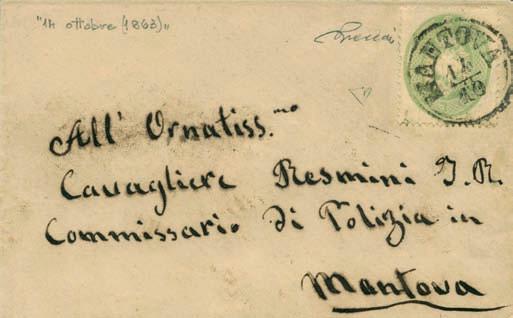 "14 ottobre (1863)"
MANTOVA
14
10
All' Ornatiss.mo
Cavagliere Resmini I. R.
Commissario di Polizia in
Mantova